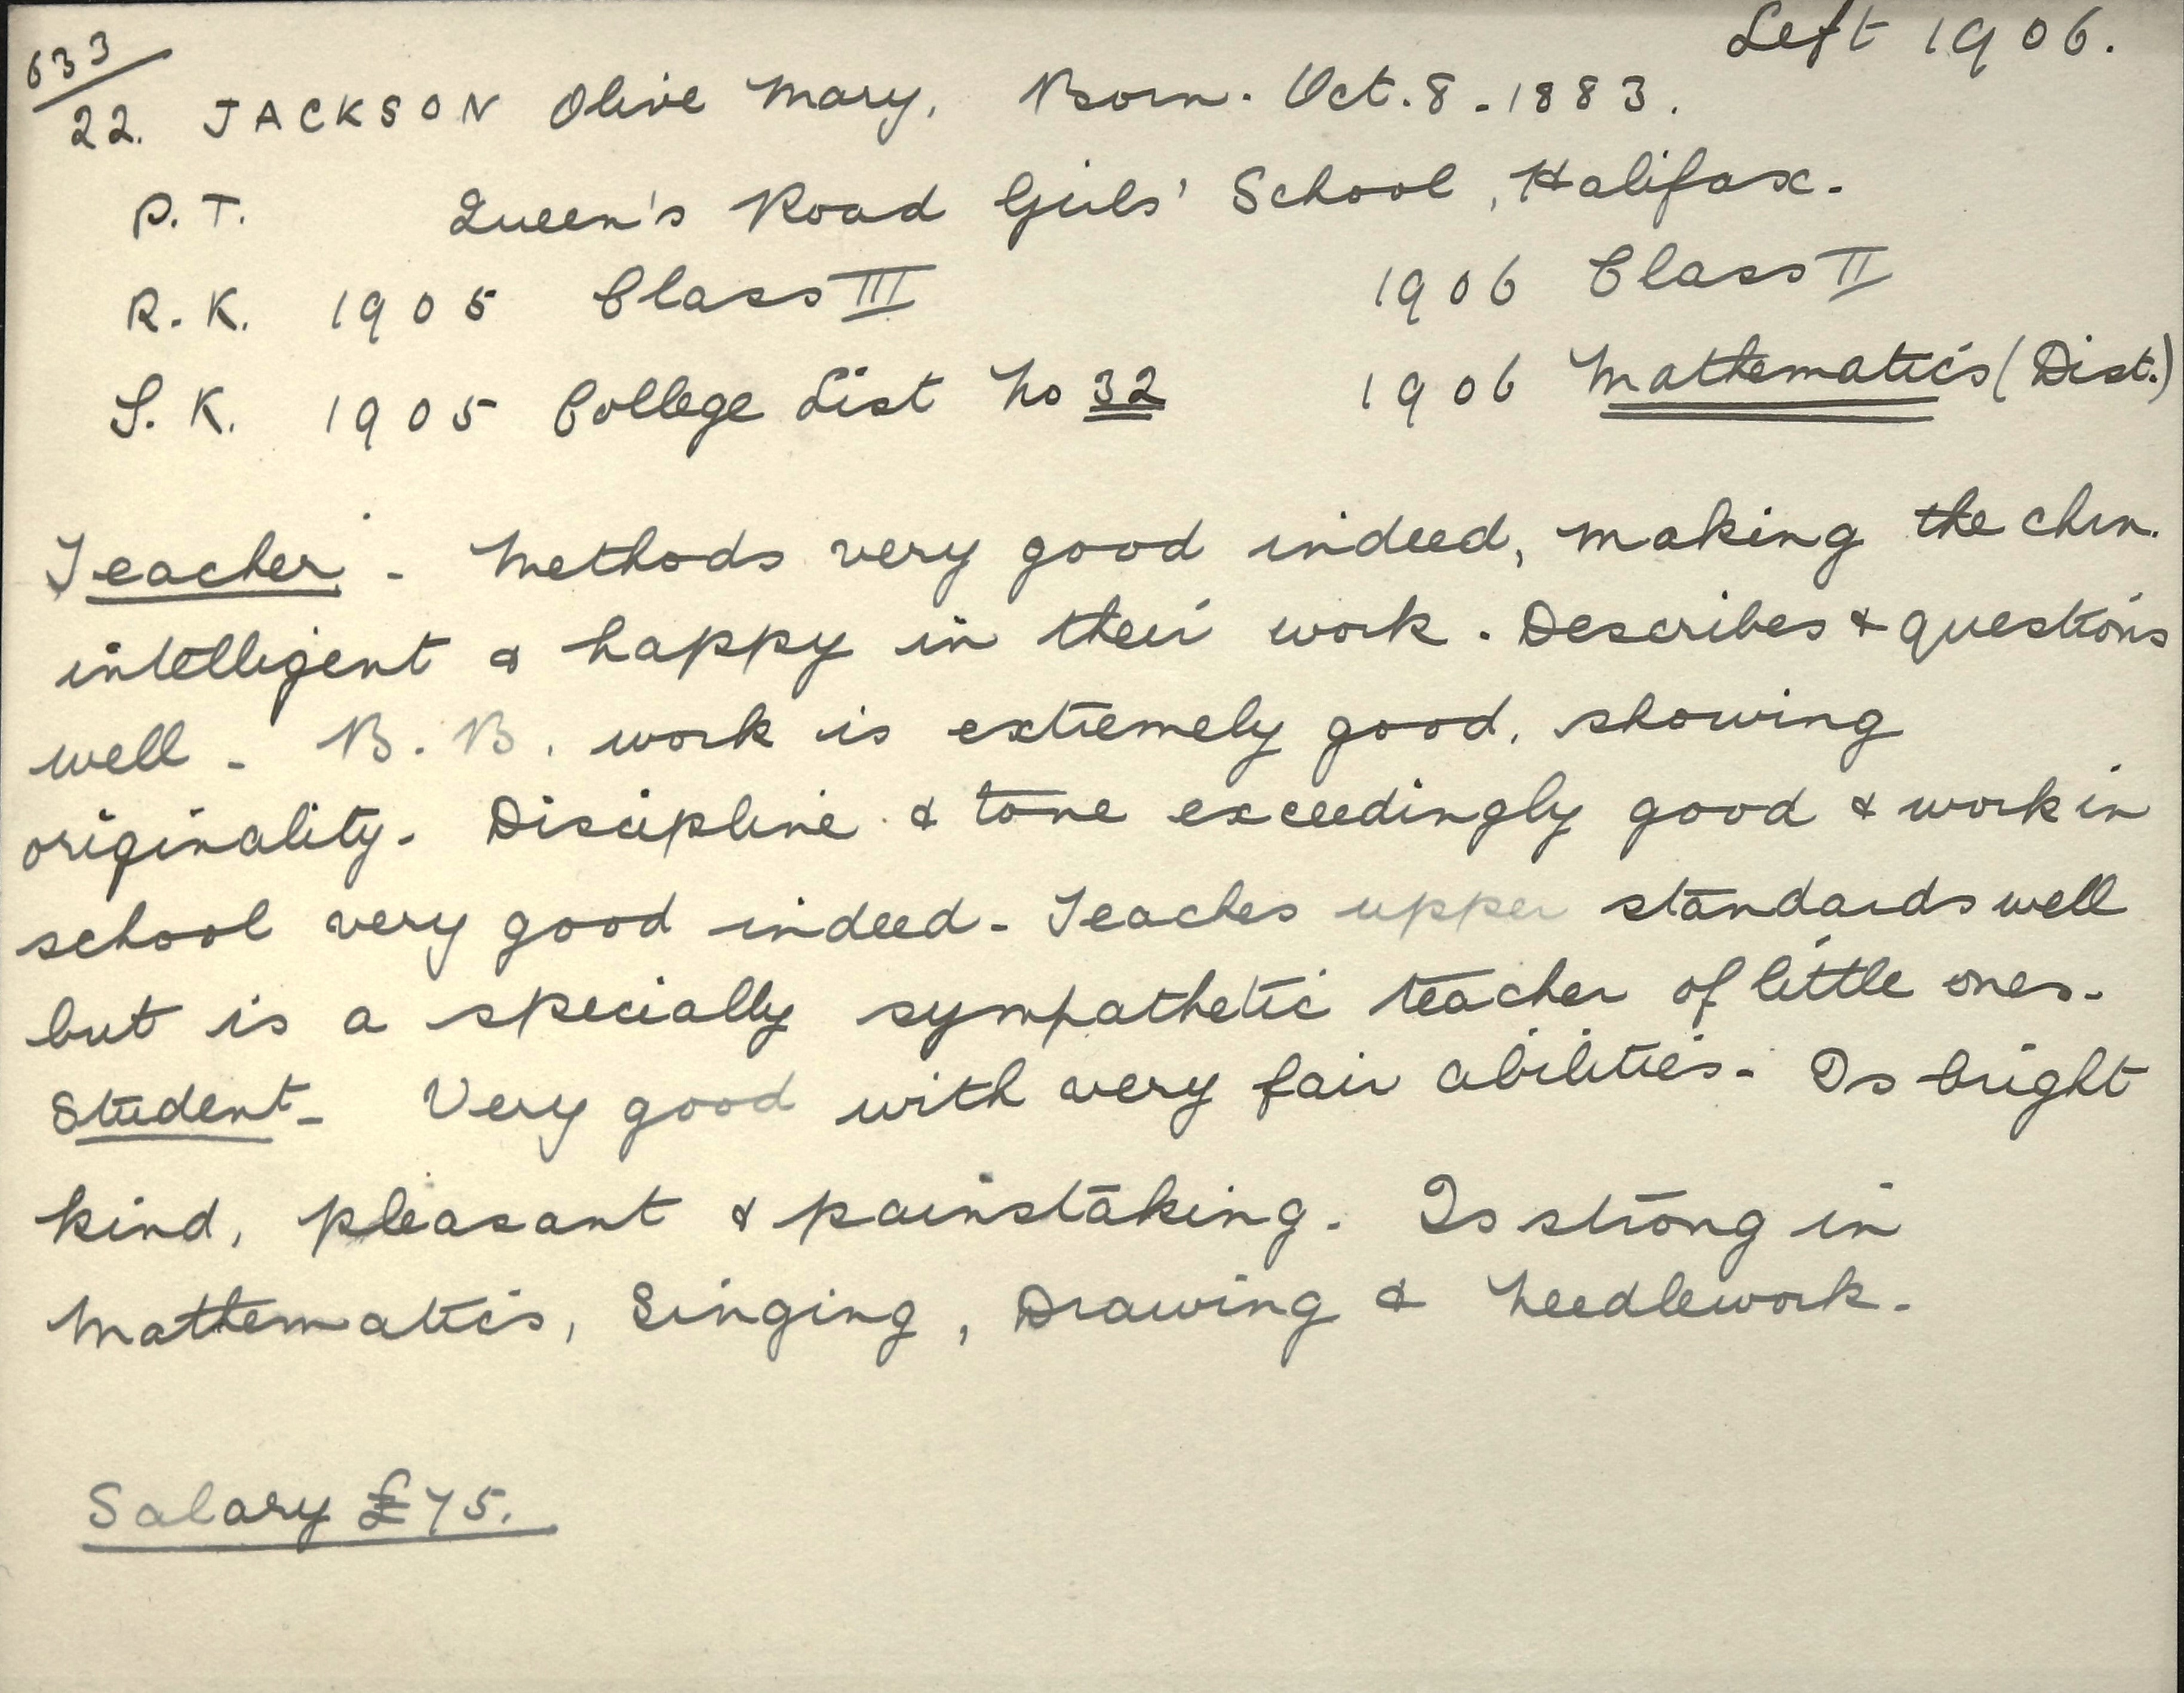 Left 1906.
633/22. JACKSON Olive Mary. Born. Oct. 8. 1883.
P. T. Queen's Road Girls' School, Halifax.
R. K. 1905 Class III 1906 Class II
S. K. 1905 College List No 32 1906 Mathematics (Dist.)
Teacher - Methods very good indeed, making the chn.
intelligent & happy in their work. Describes & questions
well - B. B. work is extremely good, showing
originality. Discipline & tone exceedingly good & work in
school very good indeed - Teaches upper standards well
but is a specially sympathetic teacher of little ones.
Student - Very good with very fair abilities. Is bright
kind, pleasant & painstaking. Is strong in
Mathematics, Singing, Drawing & Needlework.
Salary £75.